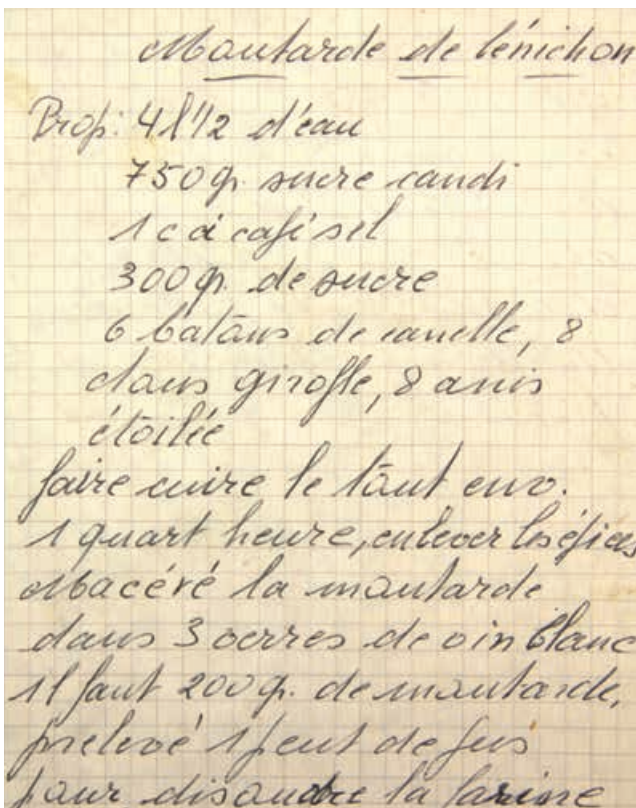 Moutarde de Bénichon
Prop: 4 l 1/2 d'eau
750 gr. sucre candi
1 c à café sel
300 gr. de sucre
6 batôns de canelle, 8
clous girofle, 8 anis
étoilée
faire cuire le tout env.
1 quart heure, enlever les épices
Macéré la moutarde
dans 3 verres de vin blanc
Il faut 200 gr. de moutarde,
prelevé 1 peut de jus
pour disoudre la farine